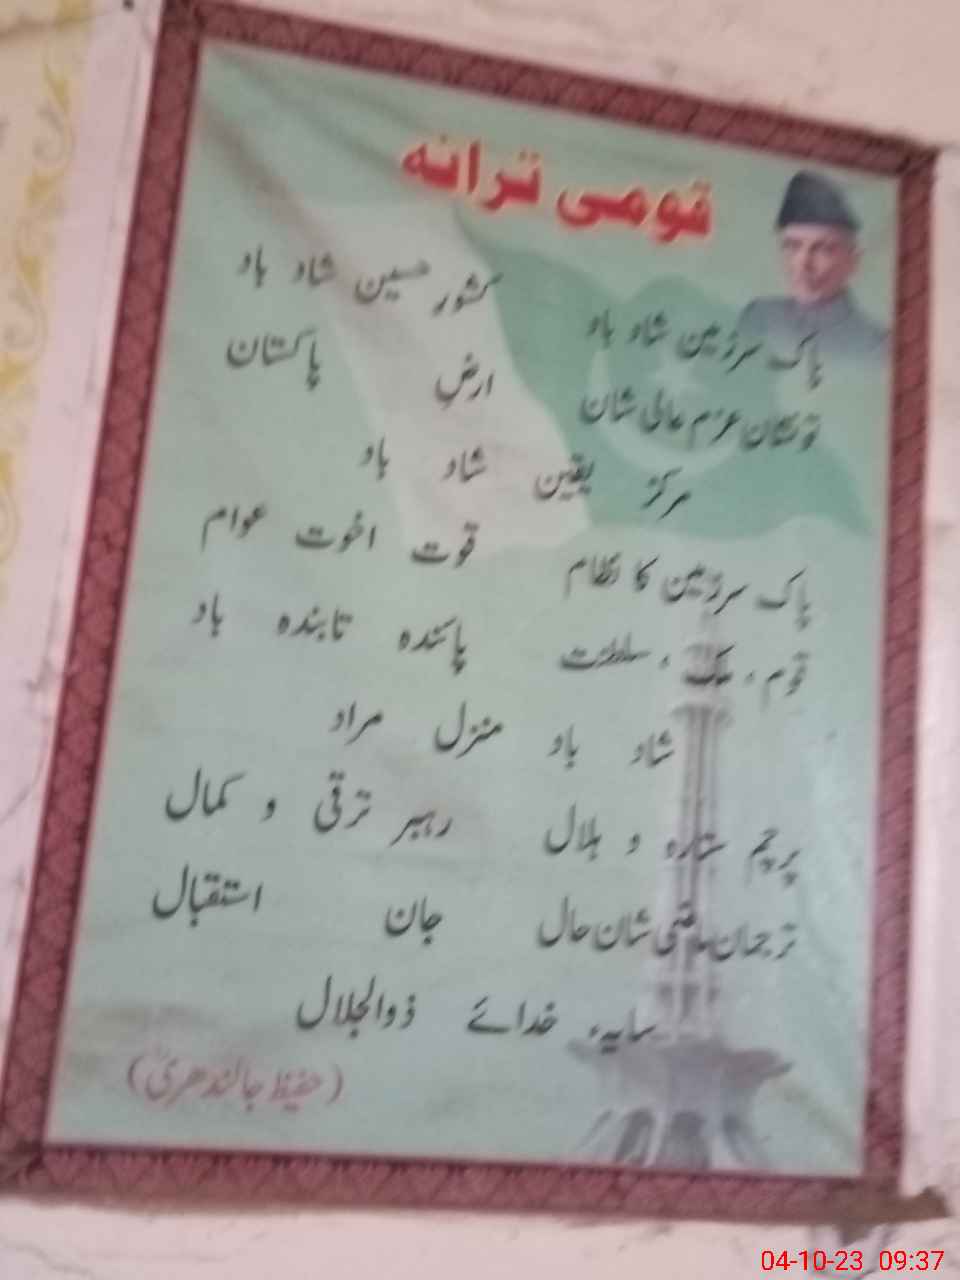 قومی ترانہ
پاک سرزمین شاد باد کشور حسین شاد باد
تو نشان عزم عالی شان ارضِ پاکستان
مرکز یقین شاد باد
پاک سرزمین کا نظام قوت اخوت عوام
قوم، ملک، سلطنت پائندہ تابندہ باد
شاد باد منزل مراد
پرچم ستارہ و ہلال رہبر ترقی و کمال
ترجمان ماضی شان حال جان استقبال
سایہء خدائے ذوالجلال
(حفیظ جالندھری)
04-10-23 09:37